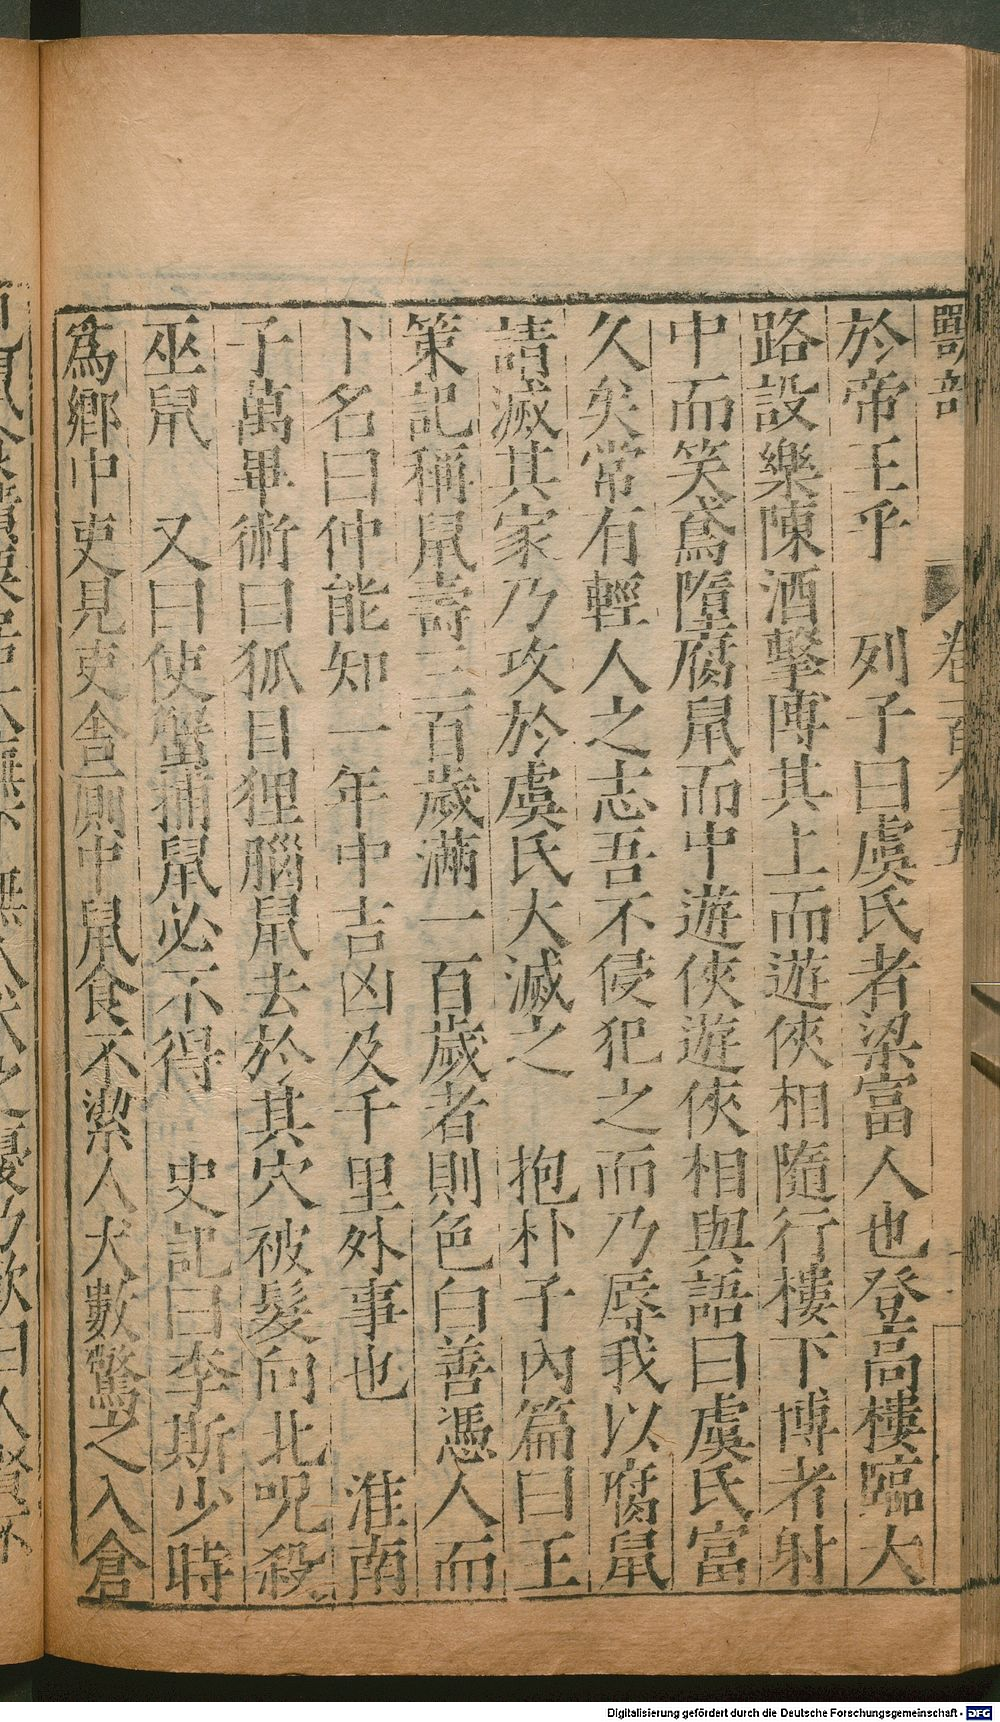 獸部 卷一百九十五
於帝王乎 列子曰虞氏者梁富人也登高樓臨大
路設樂陳酒擊博其上而遊俠相隨行樓下博者射
中而笑鳶墮腐鼠而中遊俠遊俠相與語曰虞氏富
久矣常有輕人之志吾不侵犯之而乃辱我以腐鼠
請滅其家乃攻於虞氏大滅之 抱朴子內篇曰玉
策記稱鼠壽三百歲滿一百歲者則色白善憑人而
卜名曰仲能知一年中吉凶及千里外事也 淮南
子萬畢術曰狐目狸腦鼠去於其穴被髮向北咒殺
巫鼠 又曰使蟹捕鼠必不得 史記曰李斯少時
為鄉中吏見吏舍廁中鼠食不潔人犬數驚之入倉
Digitalisierung gefördert durch die Deutsche Forschungsgemeinschaft - DFG